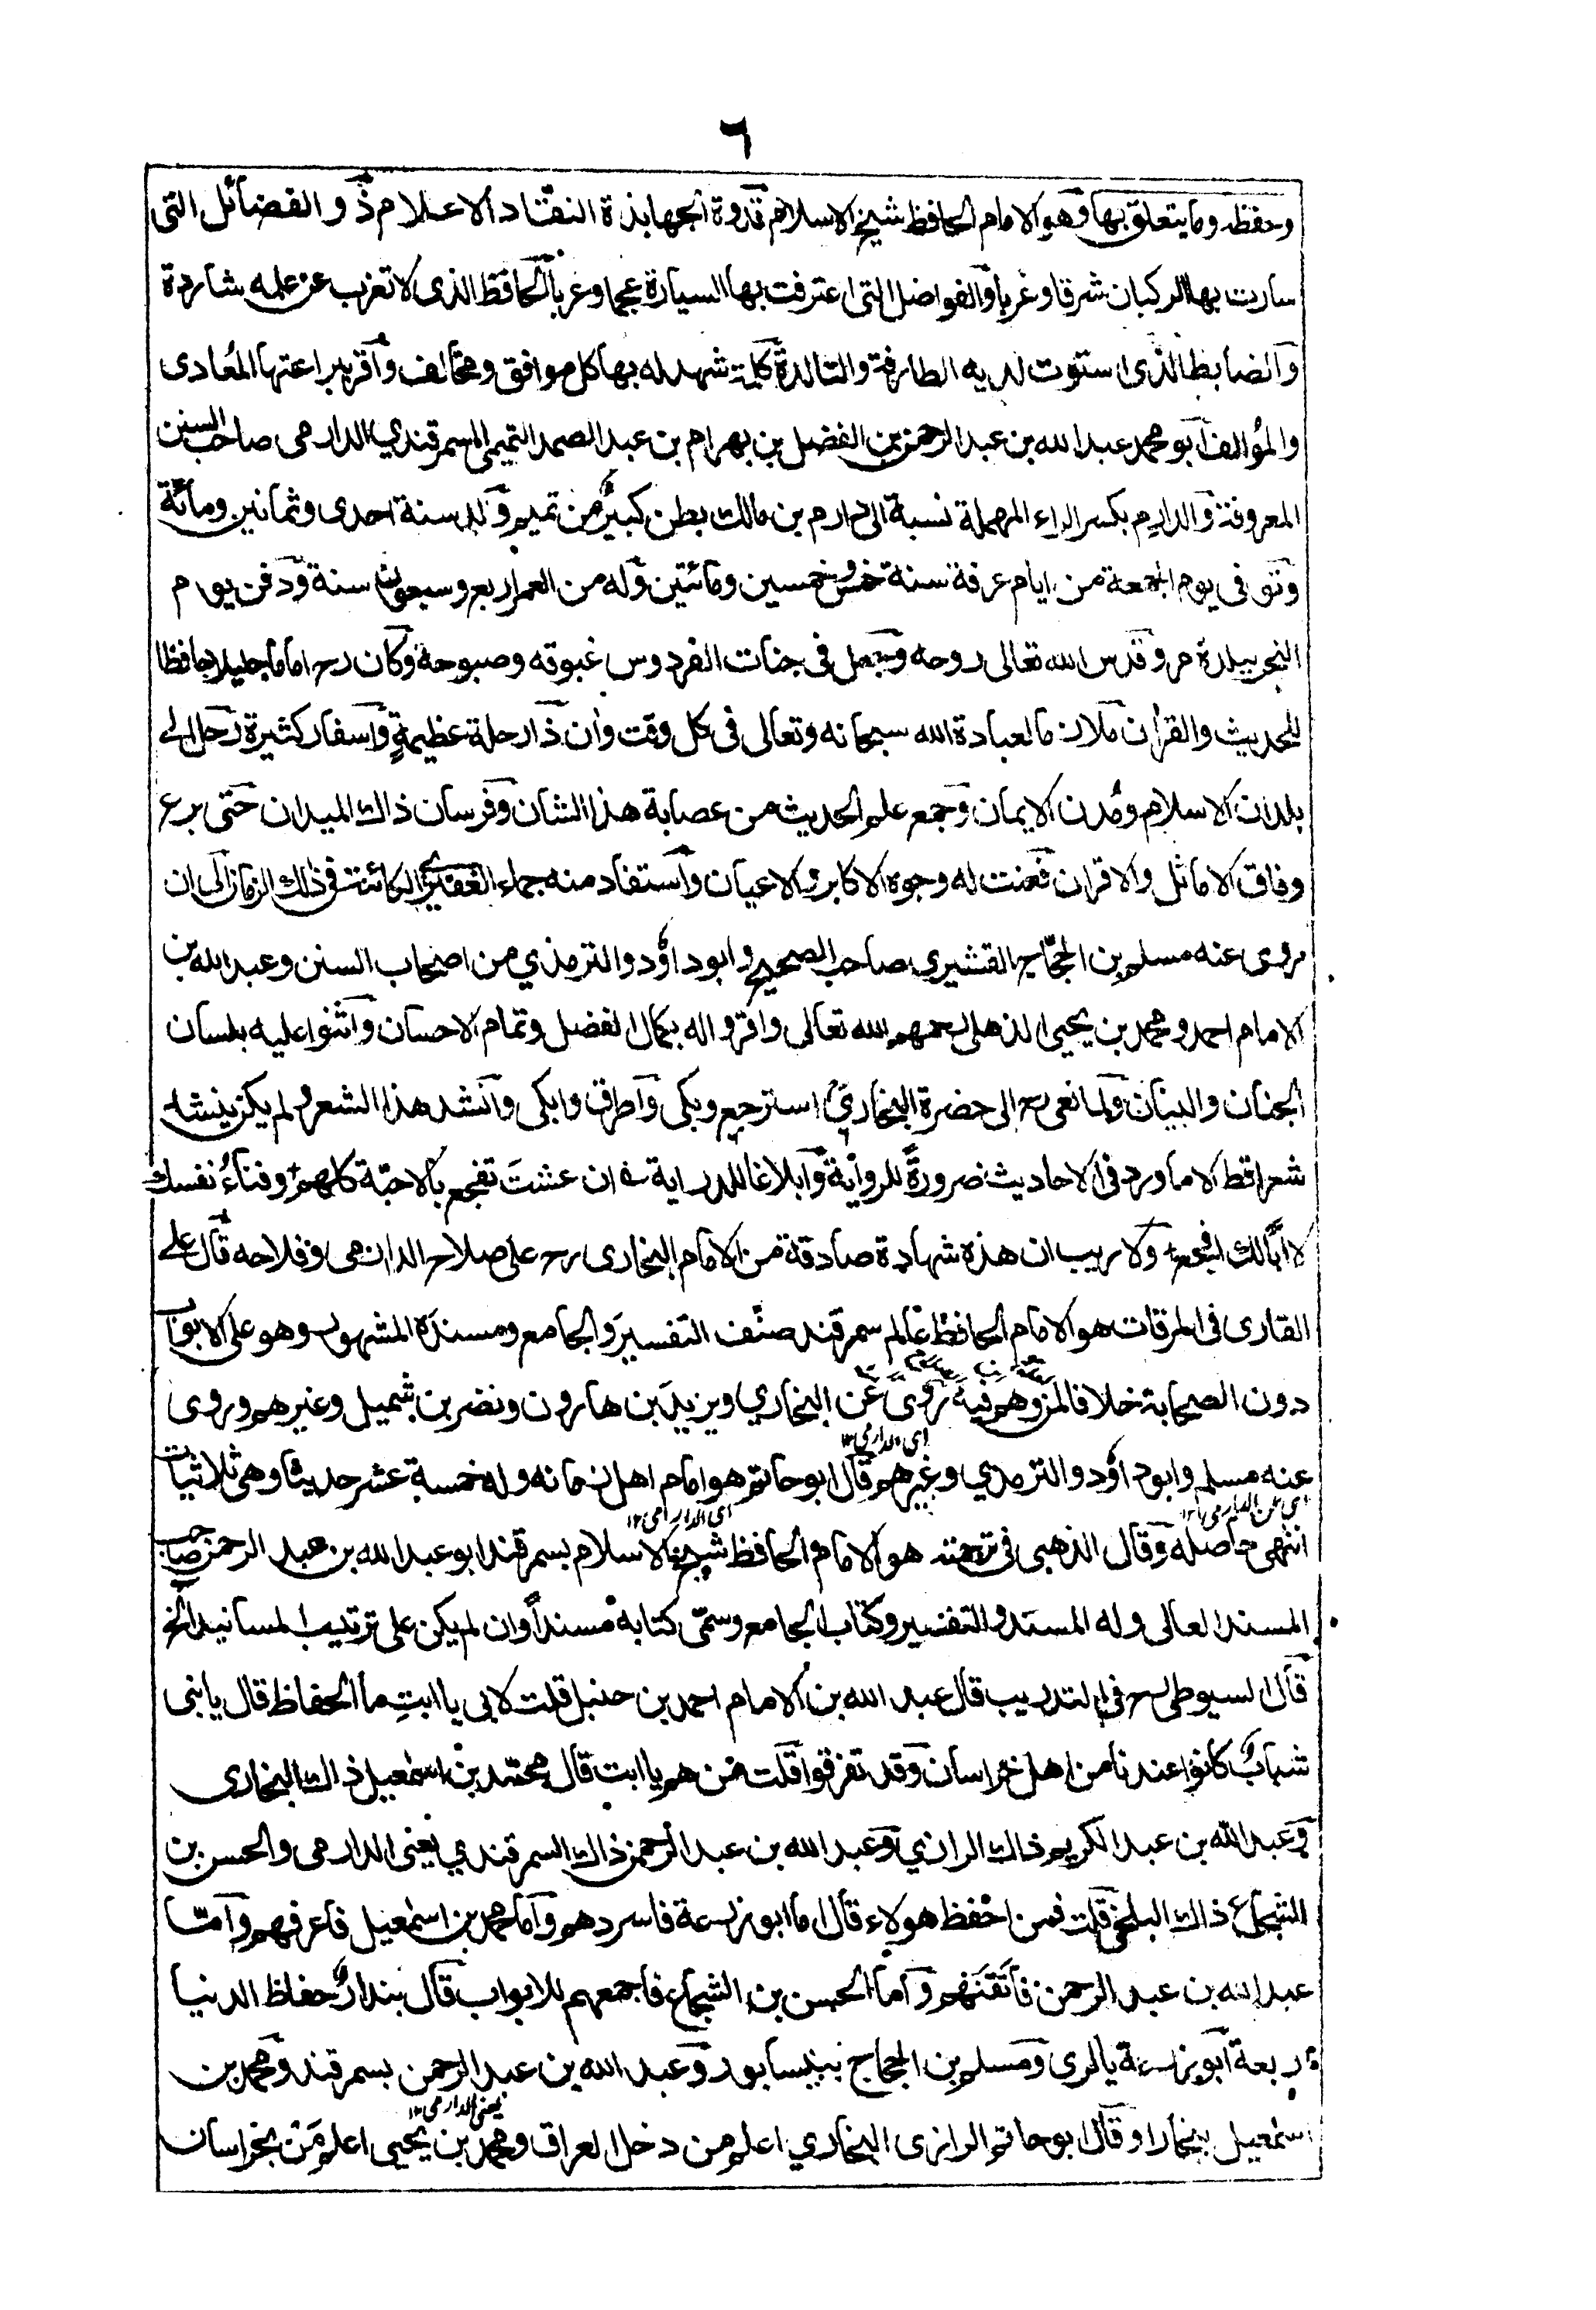 ٦
وحفظه وما يتعلق بها وهو الامام الحافظ شيخ الاسلام قدوة الجهابذة النقاد الاعلام ذو الفضائل التى
سارت بها الركبان شرقا وغربا والفواضل التى اعترفت بها السيارة عجما وعربا الحافظ الذى لا تغرب عن علمه شاردة
والضابط الذى استوت لديه الطارفة والتالدة كلمة شهد له بها كل موافق ومخالف واقر ببراعتها المُعادى
والمُؤالف ابو محمد عبد الله بن عبد الرحمن بن الفضل بن بهرام بن عبد الصمد التميمى السمرقندي الدارمى صاحب السنن
المعروفة والدارِم بكسر الراء المهملة نسبة الى دارم بن مالك بطن كبيرٌ من تميم ولد سنة احدى وثمانين ومائة
وتوفى يوم الجمعة من ايام عرفة سنة خمس وخمسين ومائتين وله من العمر اربع وسبعون سنة ودفن يوم
النحر ببلدة مرو قدس الله تعالى روحه وجعل فى جنات الفردوس غبوقه وصبوحه وكان رح اماما جليلا حافظا
للحديث والقرأن ملازما لعبادة الله سبحانه وتعالى فى كل وقت وأن ذا رحلة عظيمةٍ واسفار كثيرة رحل الى
بلدان الاسلام ومُدن الايمان وجمع علم الحديث من عصابة هذا الشان وفرسان ذاك الميدان حتى برع
وفاق الاماثل والاقران فعنت له وجوه الاكابر والاعيان واستفاد منه جماء الغفير الكائنة فى ذلك الزمان الى ان
روى عنه مسلم بن الحجّاج القشيري صاحب الصحيح وابو داؤد والترمذي من اصحاب السنن وعبد الله بن
الامام احمد ومحمد بن يحيى الذهلى رحمهم الله تعالى واقروا له بكمال الفضل وتمام الاحسان واثنوا عليه بلسان
الجنان والبيان ولما نعى رح الى حضرة البخاريؒ استرجع وبكى واطرق وابكى وانشد هذا الشعر ولم يكن ينشد
شعرا قط الا ما ورد فى الاحاديث ضرورةً للرواية وابلاغا للدراية ؎ ان عشتَ تفجع بالاحبّة كلهم * وفناءُ نفسك
لا أبًا لك افجع * ولا ريب ان هذه شهادة صادقة من الامام البخارى رح على صلاح الدارمى وفلاحه قال على
القارى فى المرقات هو الامام الحافظ عالم سمرقند صنّف التفسيرَ والجامع ومسندَه المشهور وهو على الابواب
دون الصحابة خلافا لمن وهم فيه روى عن البخاري ويزيد بن هارون ونضر بن شميل وغيرهم وروى
اى الدارمى١٢
عنه مسلم وابو داؤد والترمذي وغيرهم قال ابو حاتم هو امام اهل زمانه وله خمسة عشر حديثا وهى ثلاثيات
اى الدارمى١٢
انتهى حاصله وقال الذهبى فى ترجمته هو الامام الحافظ شيخ الاسلام بسمرقند ابو عبد الله بن عبد الرحمن صاحب
المسند العالى وله المسند والتفسير وكتاب الجامع وسمّى كتابه مسنداً وان لم يكن على ترتيب المسانيد الخ
قال السيوطى رح فى التدريب قال عبد الله بن الامام احمد بن حنبل قلت لابى يا ابتِ ما الحفاظ قال يا بنى
شبابٌ كانوا عندنا من اهل خراسان وقد تفرقوا قلت من هم يا ابت قال محمّد بن اسمٰعيل ذاك البخارى
وعبد الله بن عبد الكريم ذاك الرازي وعبد الله بن عبد الرحمن ذاك السمرقندي يعنى الدارمى والحسن بن
الشجاع ذاك البلخى قلت فمن احْفظ هولاء قال اما ابو زرعة فاسردهم واما محمد بن اسمٰعيل فاعرفهم وامّا
عبد الله بن عبد الرحمن فأتقنهم واما الحسن بن الشجاع فاجمعهم للابواب قال بندارٌ حفاظ الدنيا
اربعة ابو زرعة بالرى ومسلم بن الحجاج بنيسابور وعبد الله بن عبد الرحمن بسمرقند ومحمد بن
يعنى الدارمى١٢
اسمٰعيل ببخارا وقال ابو حاتم الرازى البخاري اعلم من دخل العراق ومحمد بن يحيى اعلم مَن بخراسان